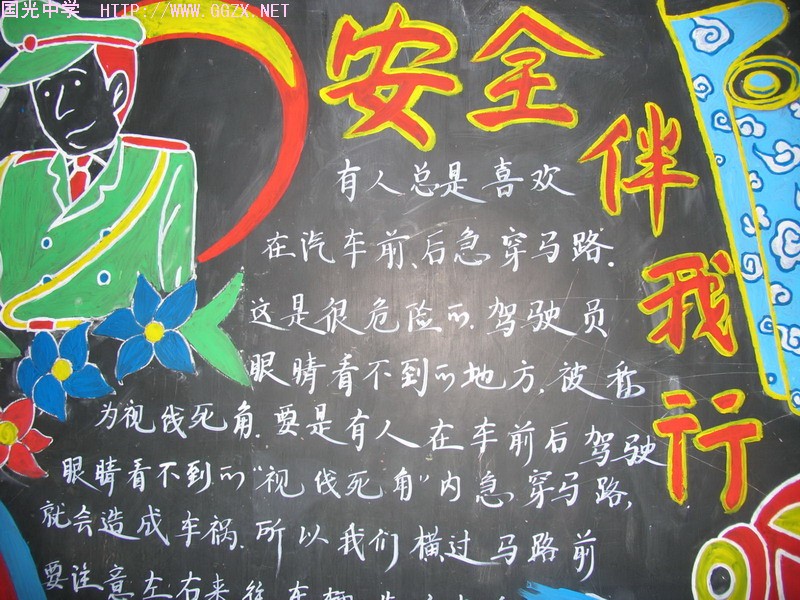 国光中学 HTTP://WWW.GGZX.NET
安全伴我行
有人总是喜欢
在汽车前、后急穿马路.
这是很危险的.驾驶员
眼睛看不到的地方,被称
为视线死角.要是有人在车前后驾驶
眼睛看不到的"视线死角"内急穿马路,
就会造成车祸.所以我们横过马路前
要注意左右来往车辆